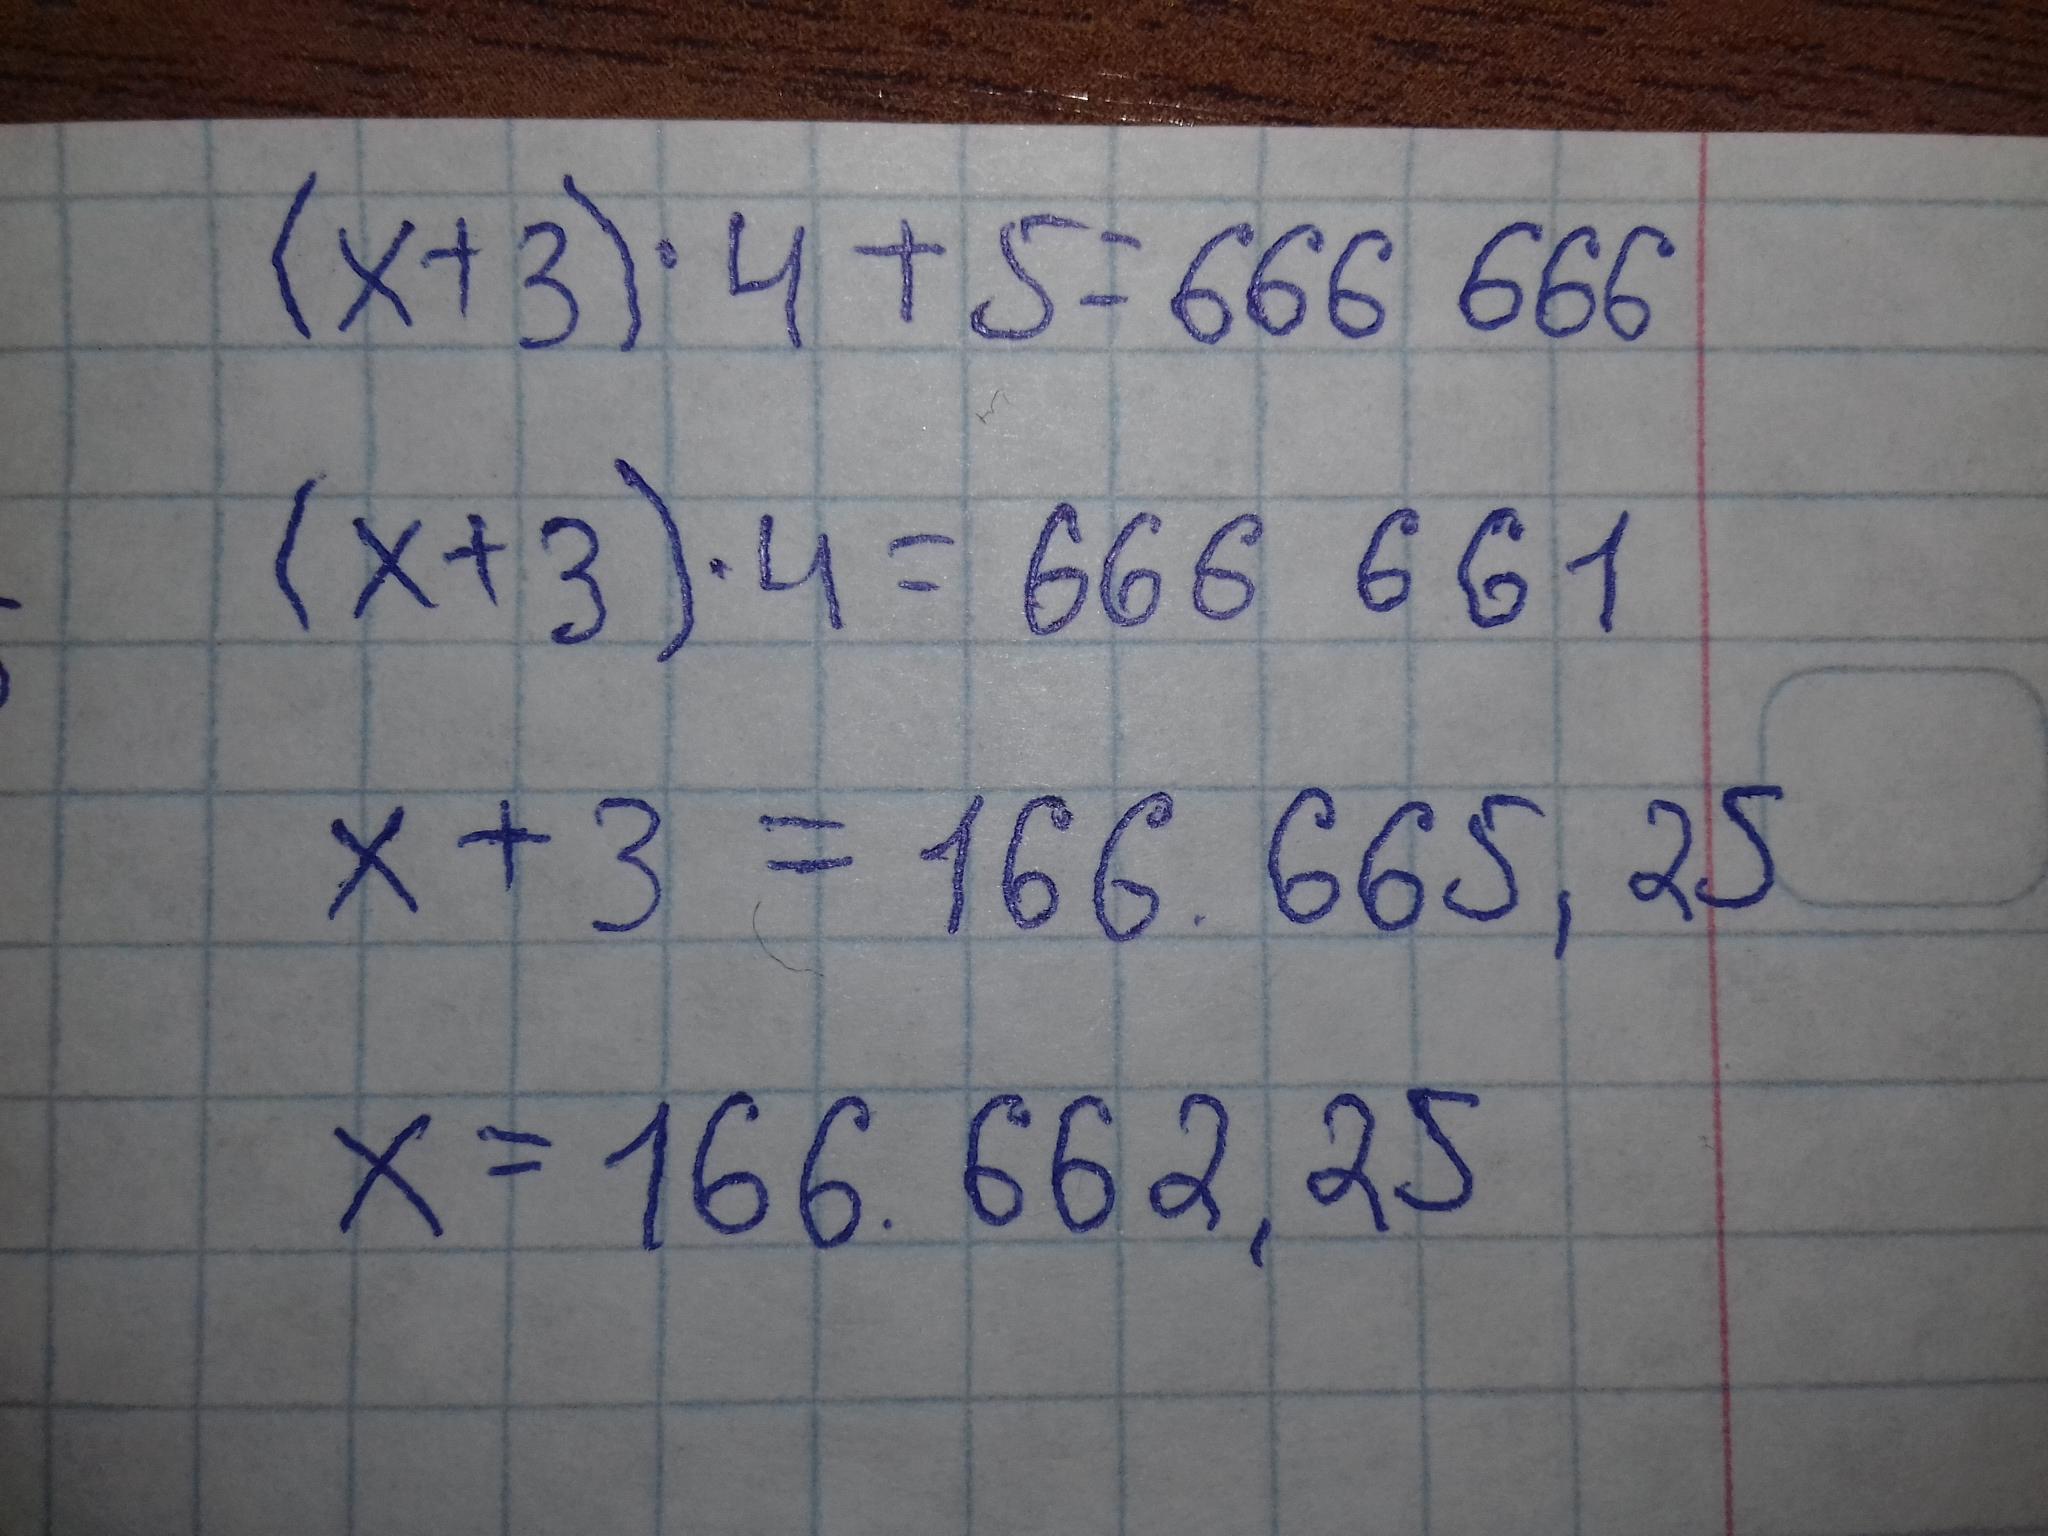 (x+3)·4+5=666 666
(x+3)·4=666 661
x+3=166.665,25
x=166.662,25